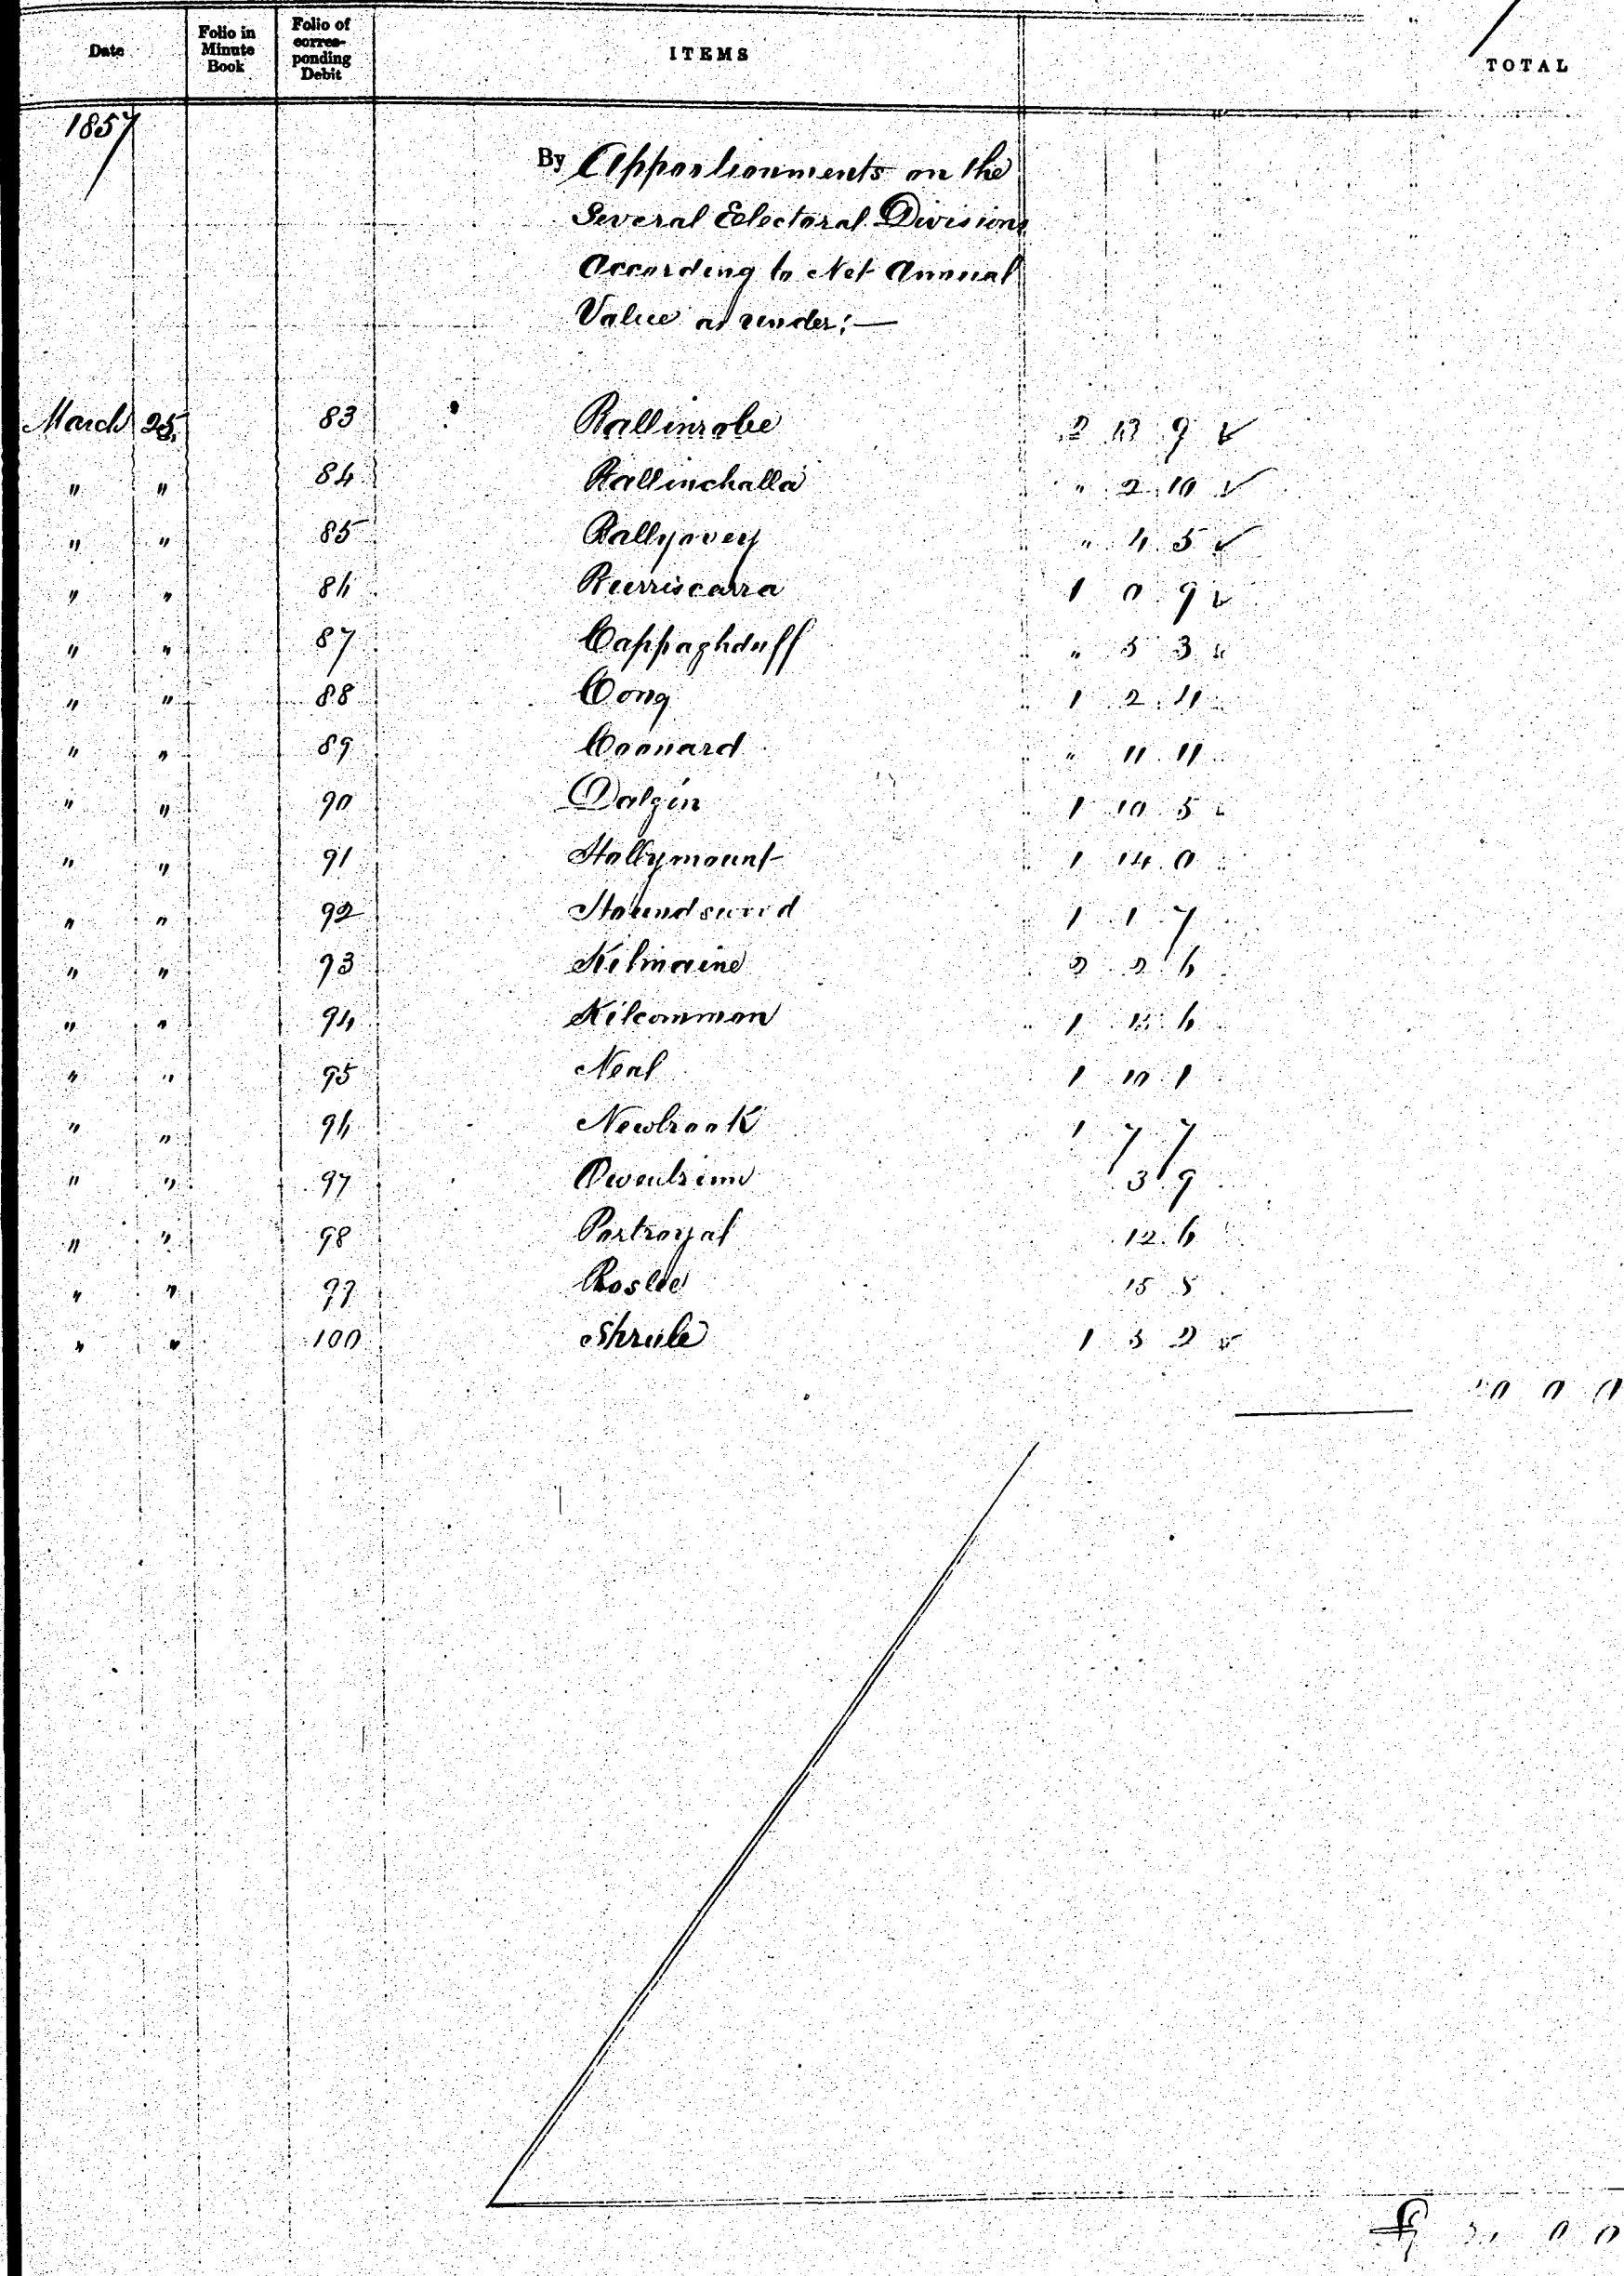 Date Folio in Minute Book Folio of corres-ponding Debit ITEMS TOTAL
1857
By Apportionments on the
Several Electoral Divisions
According to Net Annual
Value as under:—
March 25 83 Ballinrobe 2 13 9
" " 84 Ballinchalla " 2 10
" " 85 Ballyovey " 4 5
" " 86 Burriscarra 1 0 9
" " 87 Cappaghduff " 5 3
" " 88 Cong 1 2 11
" " 89 Coonard " 11 11
" " 90 Dalgin 1 10 5
" " 91 Hollymount 1 14 0
" " 92 Houndswood 1 1 7
" " 93 Kilmaine 2 2 6
" " 94 Kilcommon 1 6
" " 95 Neal 1 10 1
" " 96 Newbrook 1 7 7
" " 97 Owenbrinn 3 9
" " 98 Portroyal 12 6
" " 99 Roslee 15 8
" " 100 Shrule 1 5 2
0 0
£ 0 0